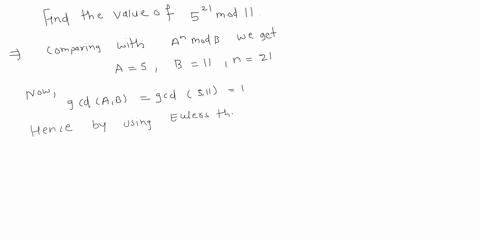 Find the value of 5^21 mod 11.
⇒ Comparing with A^n mod B we get
A = 5, B = 11, n = 21
Now,
gcd (A,B) = gcd (5,11) = 1
Hence by using Eulers th.